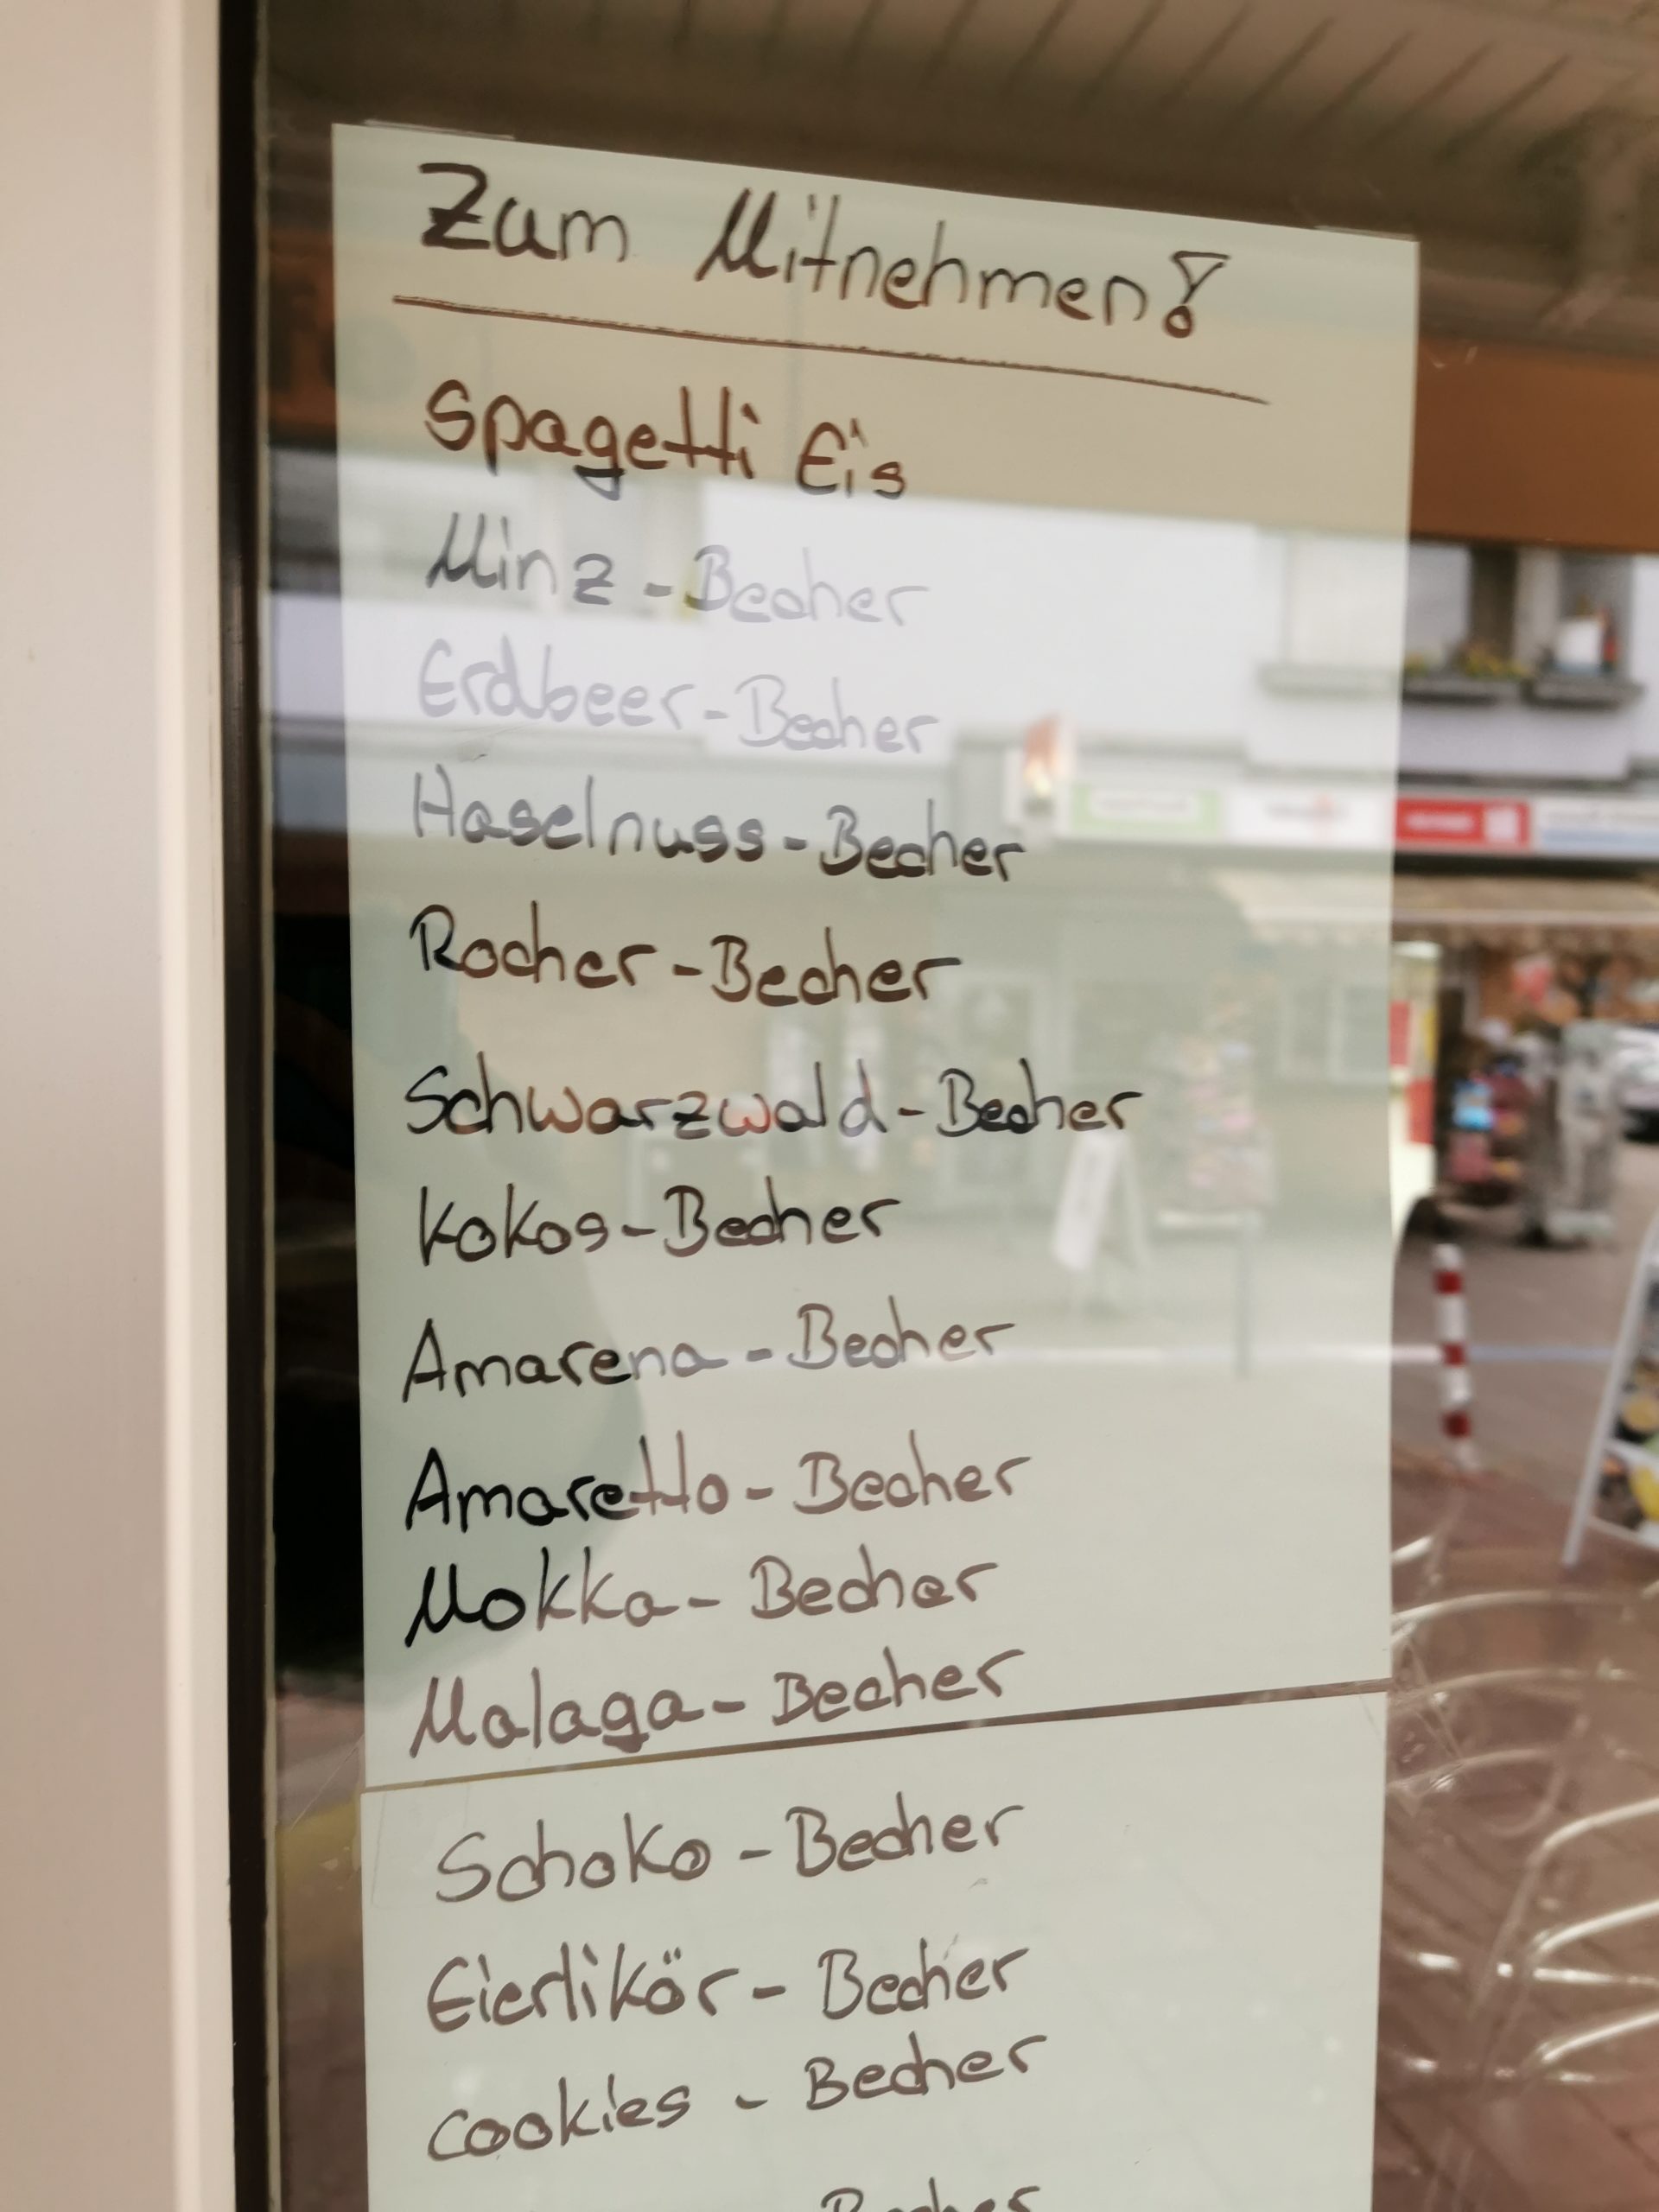 Zum Mitnehmen!
Spagetti Eis
Minz - Becher
Erdbeer - Becher
Haselnuss - Becher
Rocher - Becher
Schwarzwald - Becher
Kokos - Becher
Amarena - Becher
Amaretto - Becher
Mokka - Becher
Malaga - Becher
Schoko - Becher
Eierlikör - Becher
Cookies - Becher
Becher